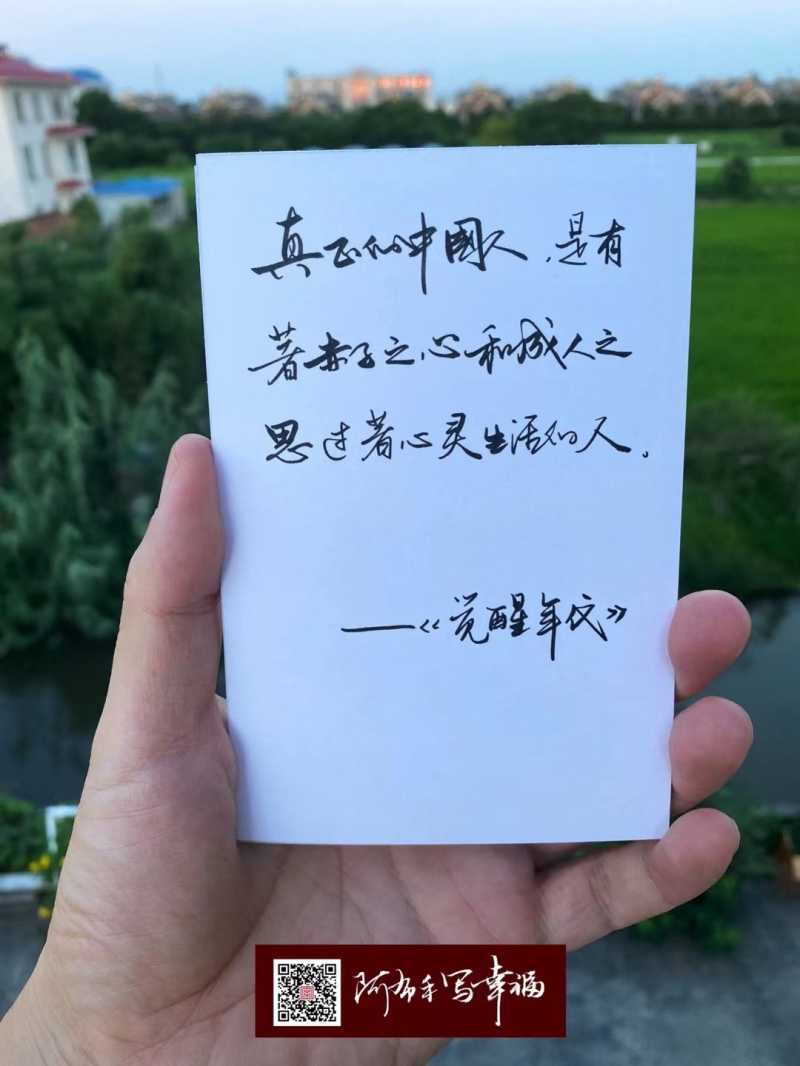 真正的中國人，是有
著赤子之心和成人之
思过著心灵生活的人。
——《觉醒年代》
阿布手写幸福